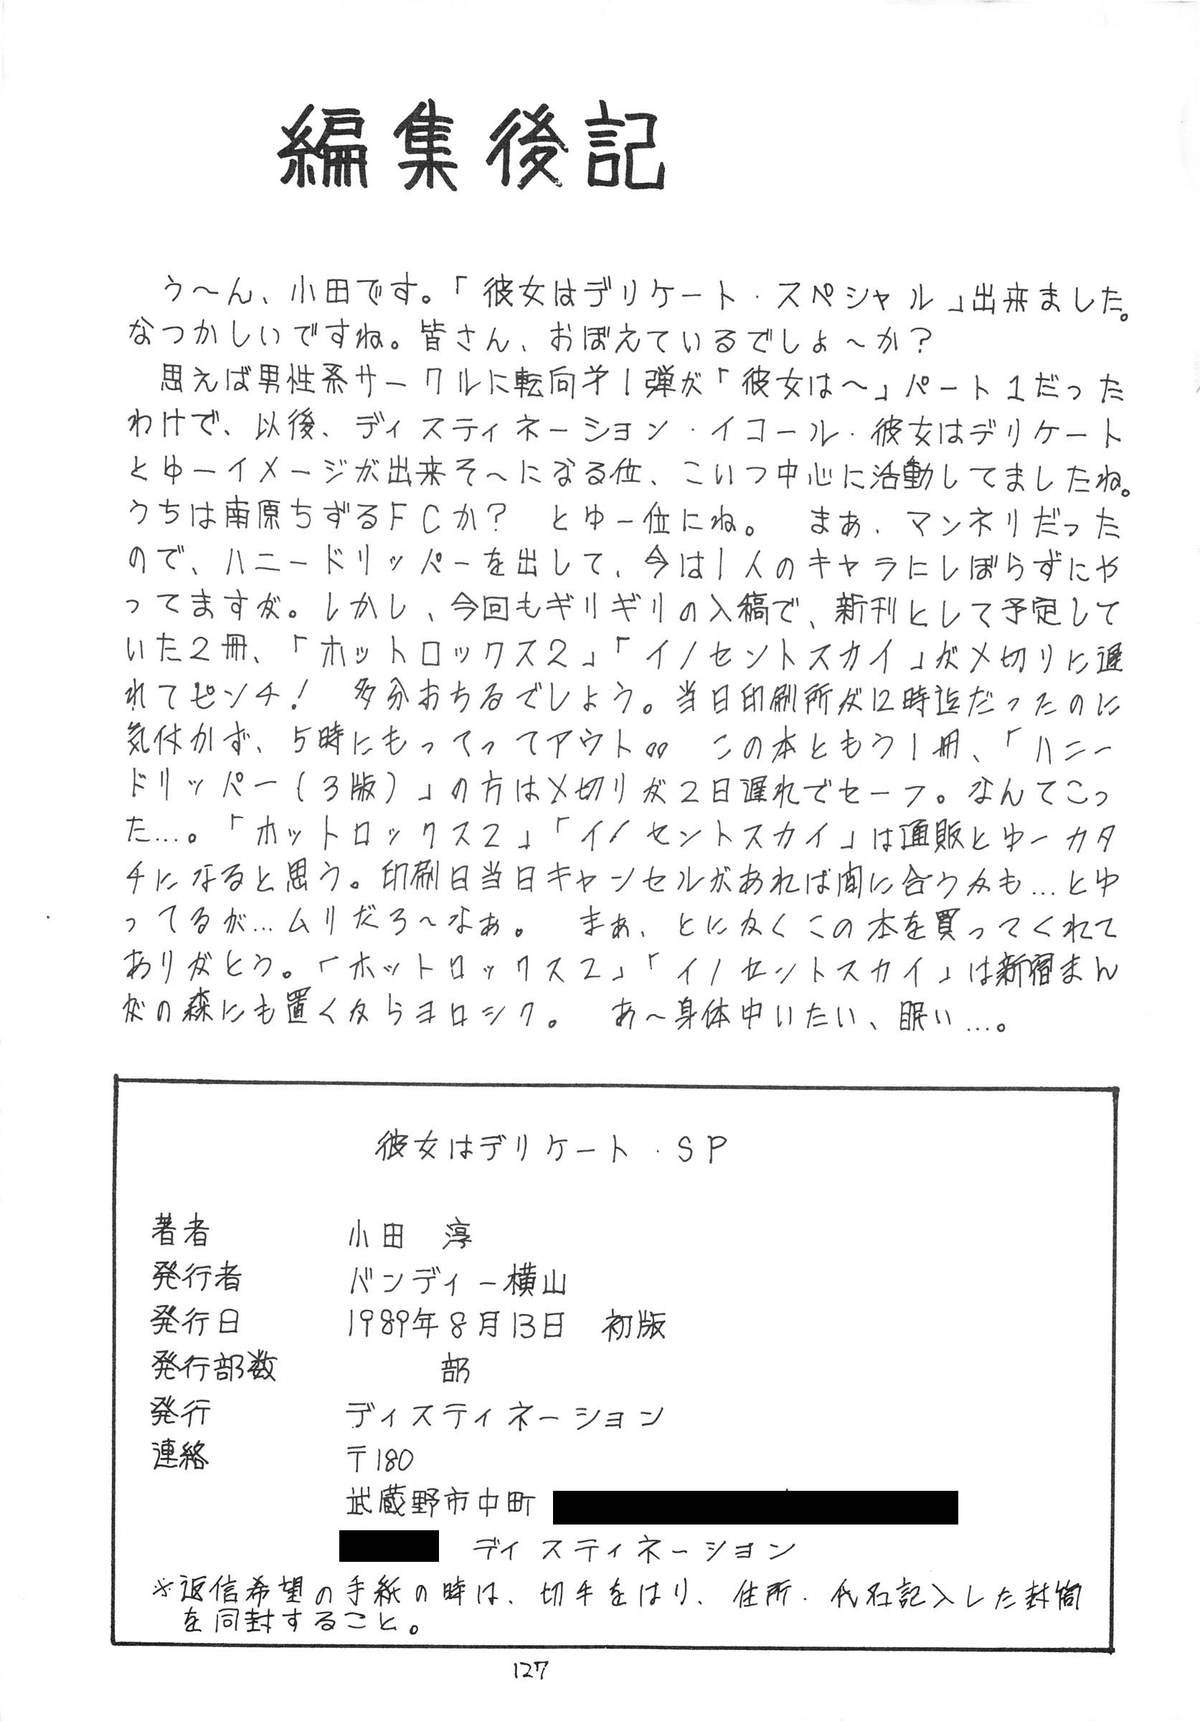 編集後記
う〜ん、小田です。「彼女はデリケート・スペシャル」出来ました。
なつかしいですね。皆さん、おぼえているでしょ〜か?
思えば男性系サークルに転向才1弾が「彼女は〜」パート1だった
わけで、以後、ディスティネーション・イコール・彼女はデリケート
とゆーイメージが出来そ〜になる位、こいつ中心に活動してましたね。
うちは南原ちずるFCか? とゆー位にね。 まあ、マンネリだった
ので、ハニードリッパーを出して、今は1人のキャラにしぼらずにや
ってますが。しかし、今回もギリギリの入稿で、新刊として予定して
いた2冊、「ホットロックス2」「イノセントスカイ」が〆切りに遅
れてピンチ! 多分おちるでしょう。当日印刷所が12時迄だったのに
気付かず、5時にもってってアウト〃 この本ともう1冊、「ハニー
ドリッパー(3版)」の方は〆切りが2日遅れでセーフ。なんてこっ
た…。「ホットロックス2」「イノセントスカイ」は通販とゆーカタ
チになると思う。印刷日当日キャンセルがあれば間に合うかも…とゆ
ってるが…ムリだろ〜なぁ。 まぁ、とにかくこの本を買ってくれて
ありがとう。「ホットロックス2」「イノセントスカイ」は新宿まん
がの森にも置くからヨロシク。 あ〜身体中いたい、眠い…。
彼女はデリケート・SP
著者 小田 淳
発行者 バンディー横山
発行日 1989年8月13日 初版
発行部数 部
発行 ディスティネーション
連絡 〒180
武蔵野市中町
ディスティネーション
※返信希望の手紙の時は、切手をはり、住所・氏名記入した封筒
を同封すること。
127